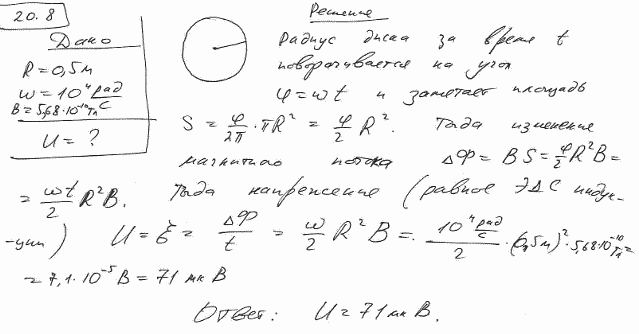 20.8
Дано
R = 0,5 м
ω = 10⁴ рад/с
B = 5,68·10⁻¹⁰ Тл
U = ?
Решение
Радиус диска за время t
поворачивается на угол
φ = ωt и заметает площадь
S = φ/2π · πR² = φ/2 R². Тогда изменение
магнитного потока ΔФ = BS = φ/2 R²B =
= ωt/2 R²B. Тогда напряжение (равное ЭДС индук-
-ции) U = ℰ = ΔФ/t = ω/2 R²B = 10⁴ рад/с / 2 · (0,5м)² · 5,68·10⁻¹⁰ Тл =
= 7,1·10⁻⁵ В = 71 мкВ
Ответ: U = 71 мкВ.